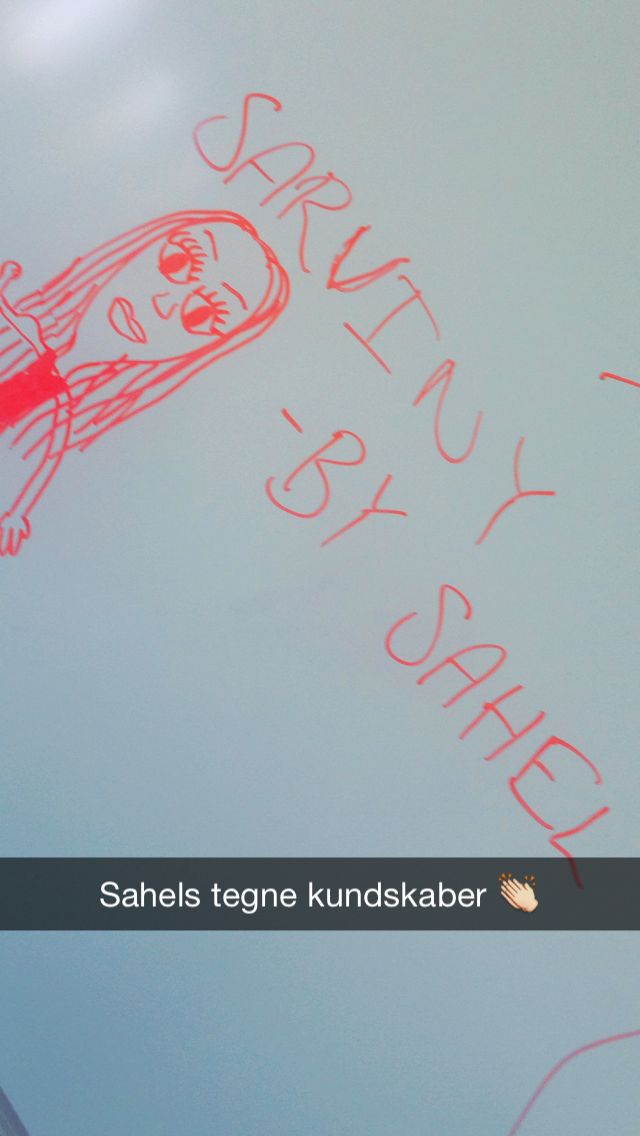 SARVINY
-BY
SAHEL
Sahels tegne kundskaber 👏